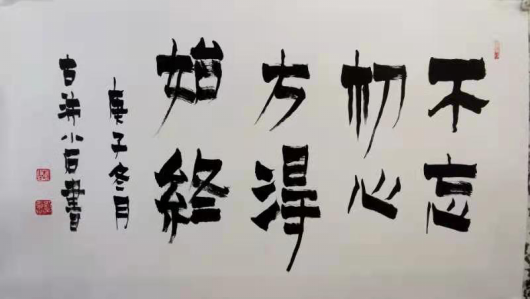 不忘
初心
方得
始終
庚子冬月
古沛小石書